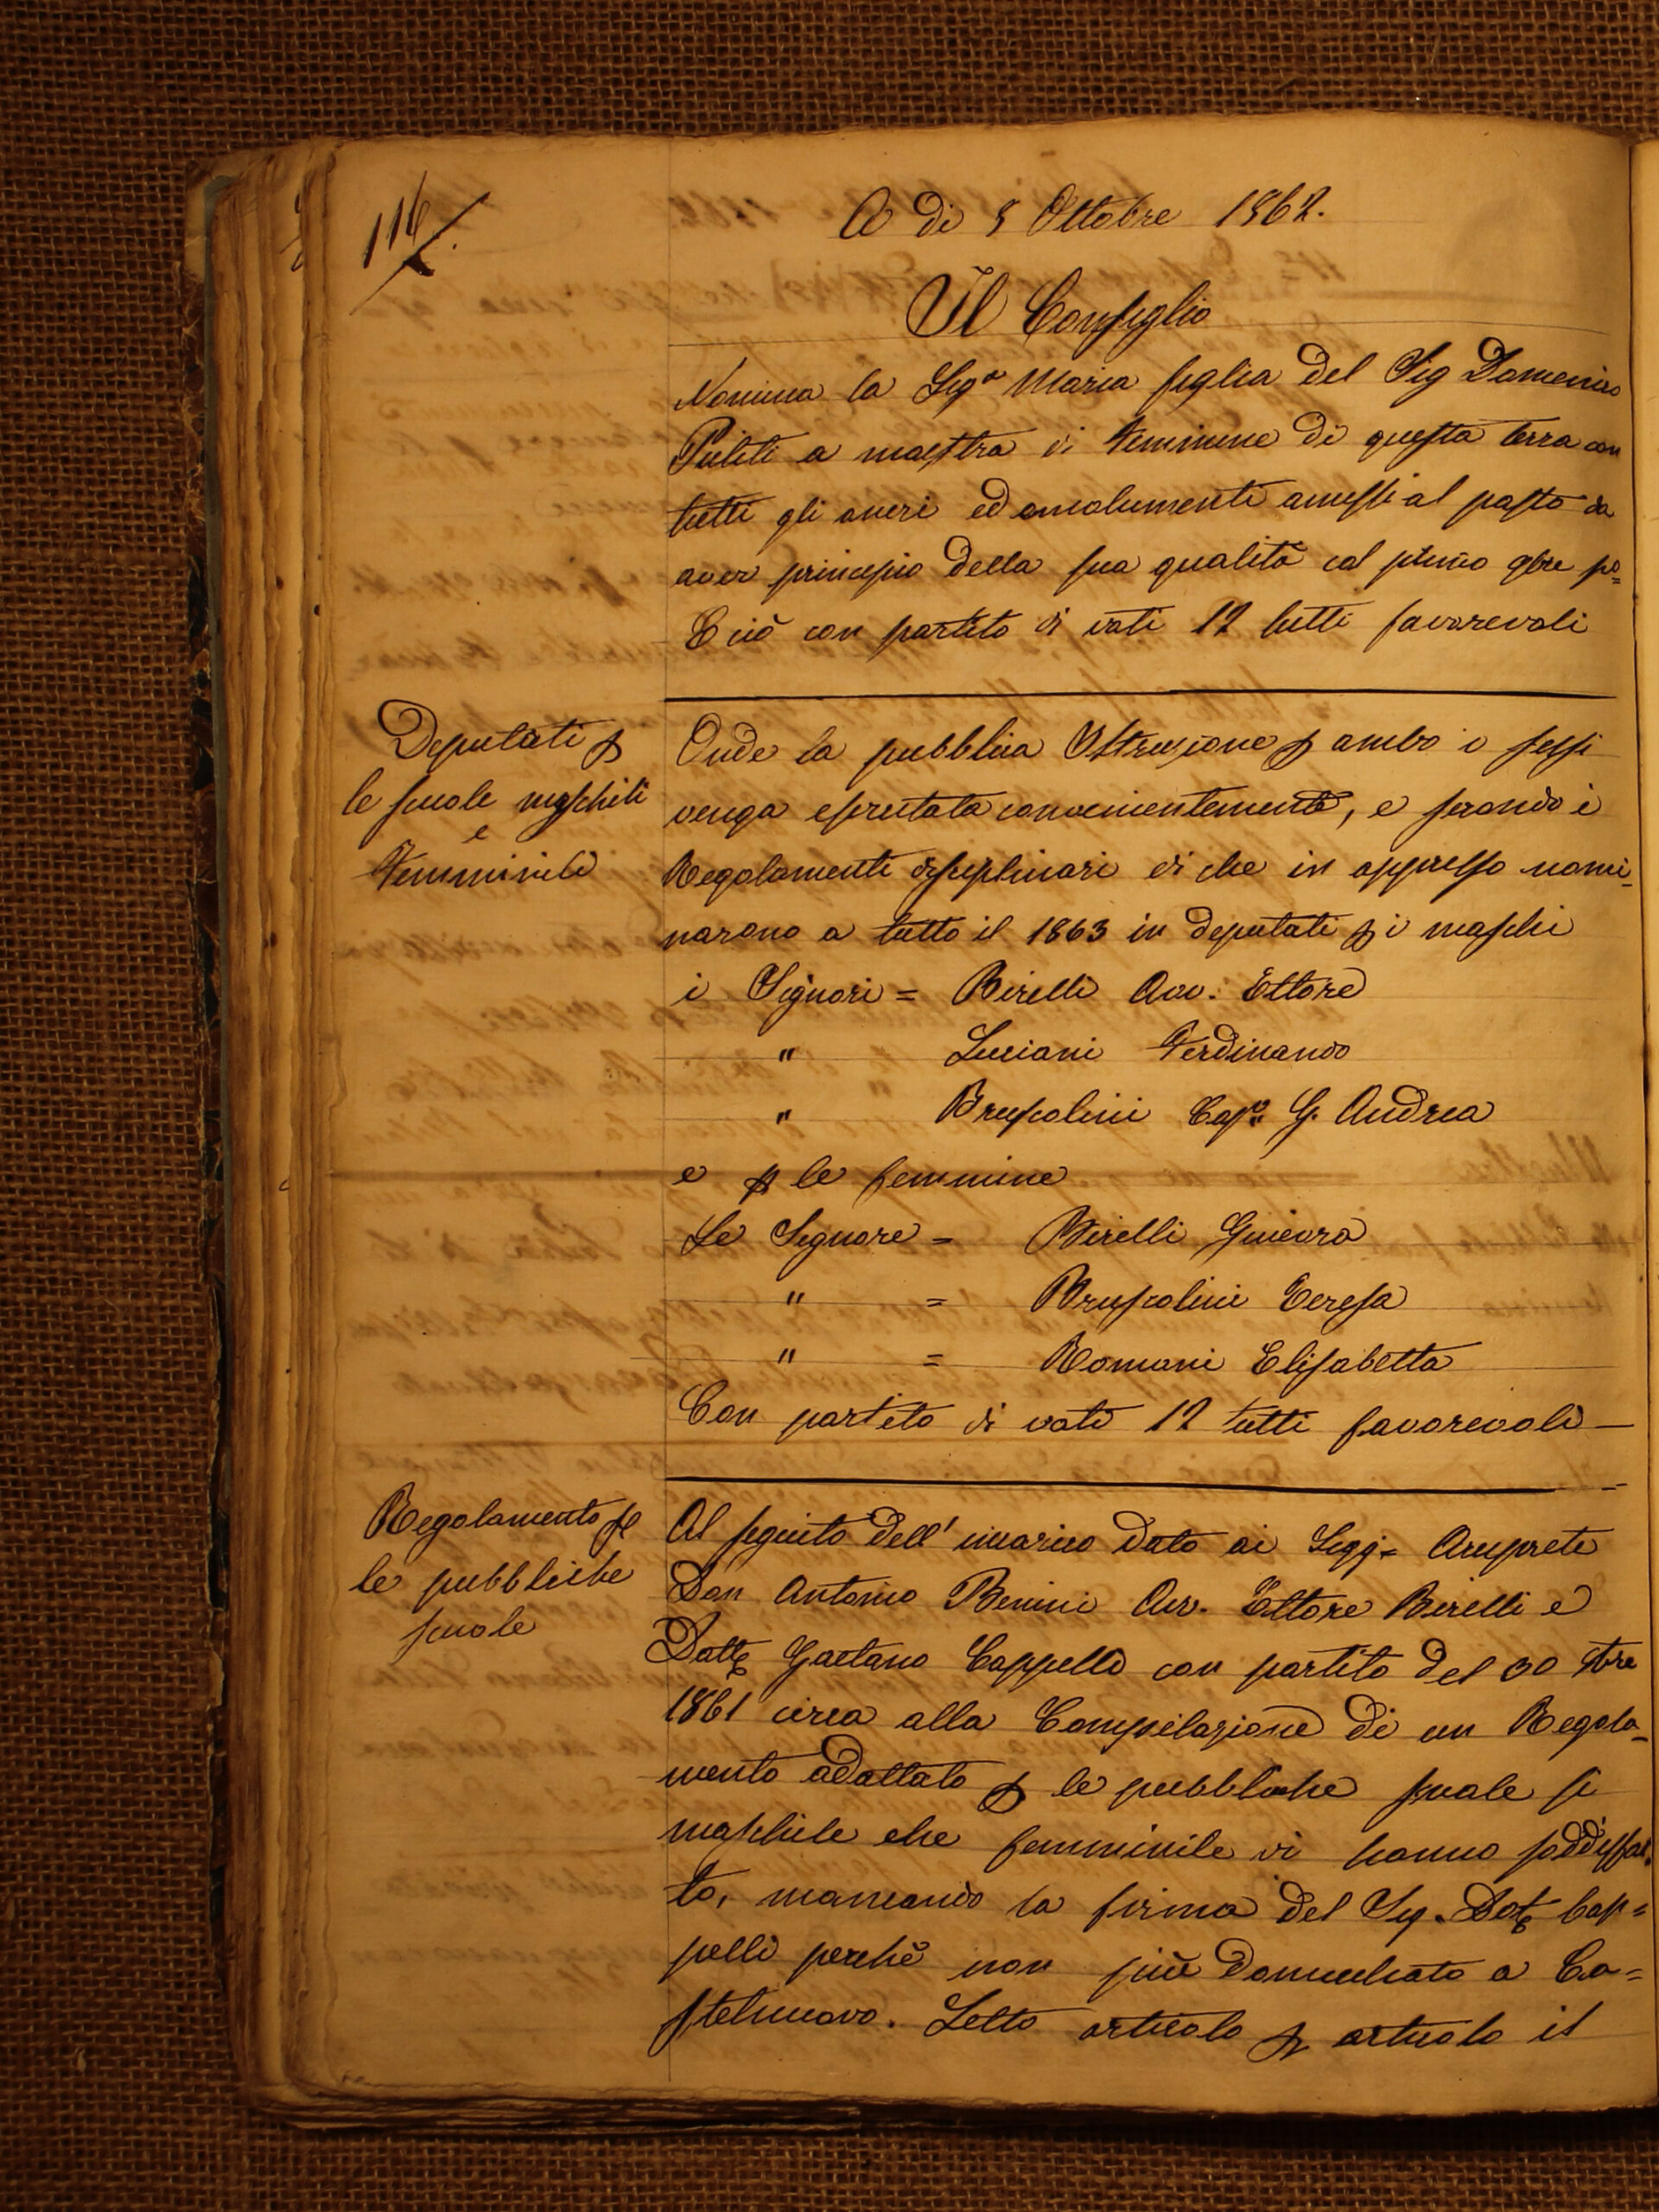 116
A di 8 Ottobre 1862.
Il Consiglio
Nomina la Sigª Maria figlia del Sig Domenico
Puliti a maestra di femmine di questa terra con
tutti gli averi ed emolumenti annessi al posto da
aver principio della sua qualità col primo 9bre po=
E ciò con partito di voti 12 tutti favorevoli
Deputati p
le scuole maschili
e
Femminili
Onde la pubblica Istruzione p ambo i sessi
venga esercitata convenientemente, e secondo i
Regolamenti disciplinari di che in appresso nomi=
narono a tutto il 1863 in deputati p i maschi
i Signori = Birelli Avv. Ettore
" Luciani Ferdinando
" Bruscolini Capº G. Andrea
e p le femmine
Le Signore = Birelli Ginevra
" = Bruscolini Teresa
" = Romani Elisabetta
Con partito di voti 12 tutti favorevoli —
Regolamento p
le pubbliche
scuole
Al seguito dell' incarico dato ai Sigg= Arciprete
Don Antonio Benini Avv. Ettore Birelli e
Dott Gaetano Cappelli con partito del 30 9bre
1861 circa alla Compilazione di un Regola=
mento adattato p le pubbliche scuole sì
maschile che femminile vi hanno soddisfat.
to, mancando la firma del Sig. Dott Cap=
pelli perchè non più domiciliato a Ca=
stelnuovo. Letto articolo p articolo il